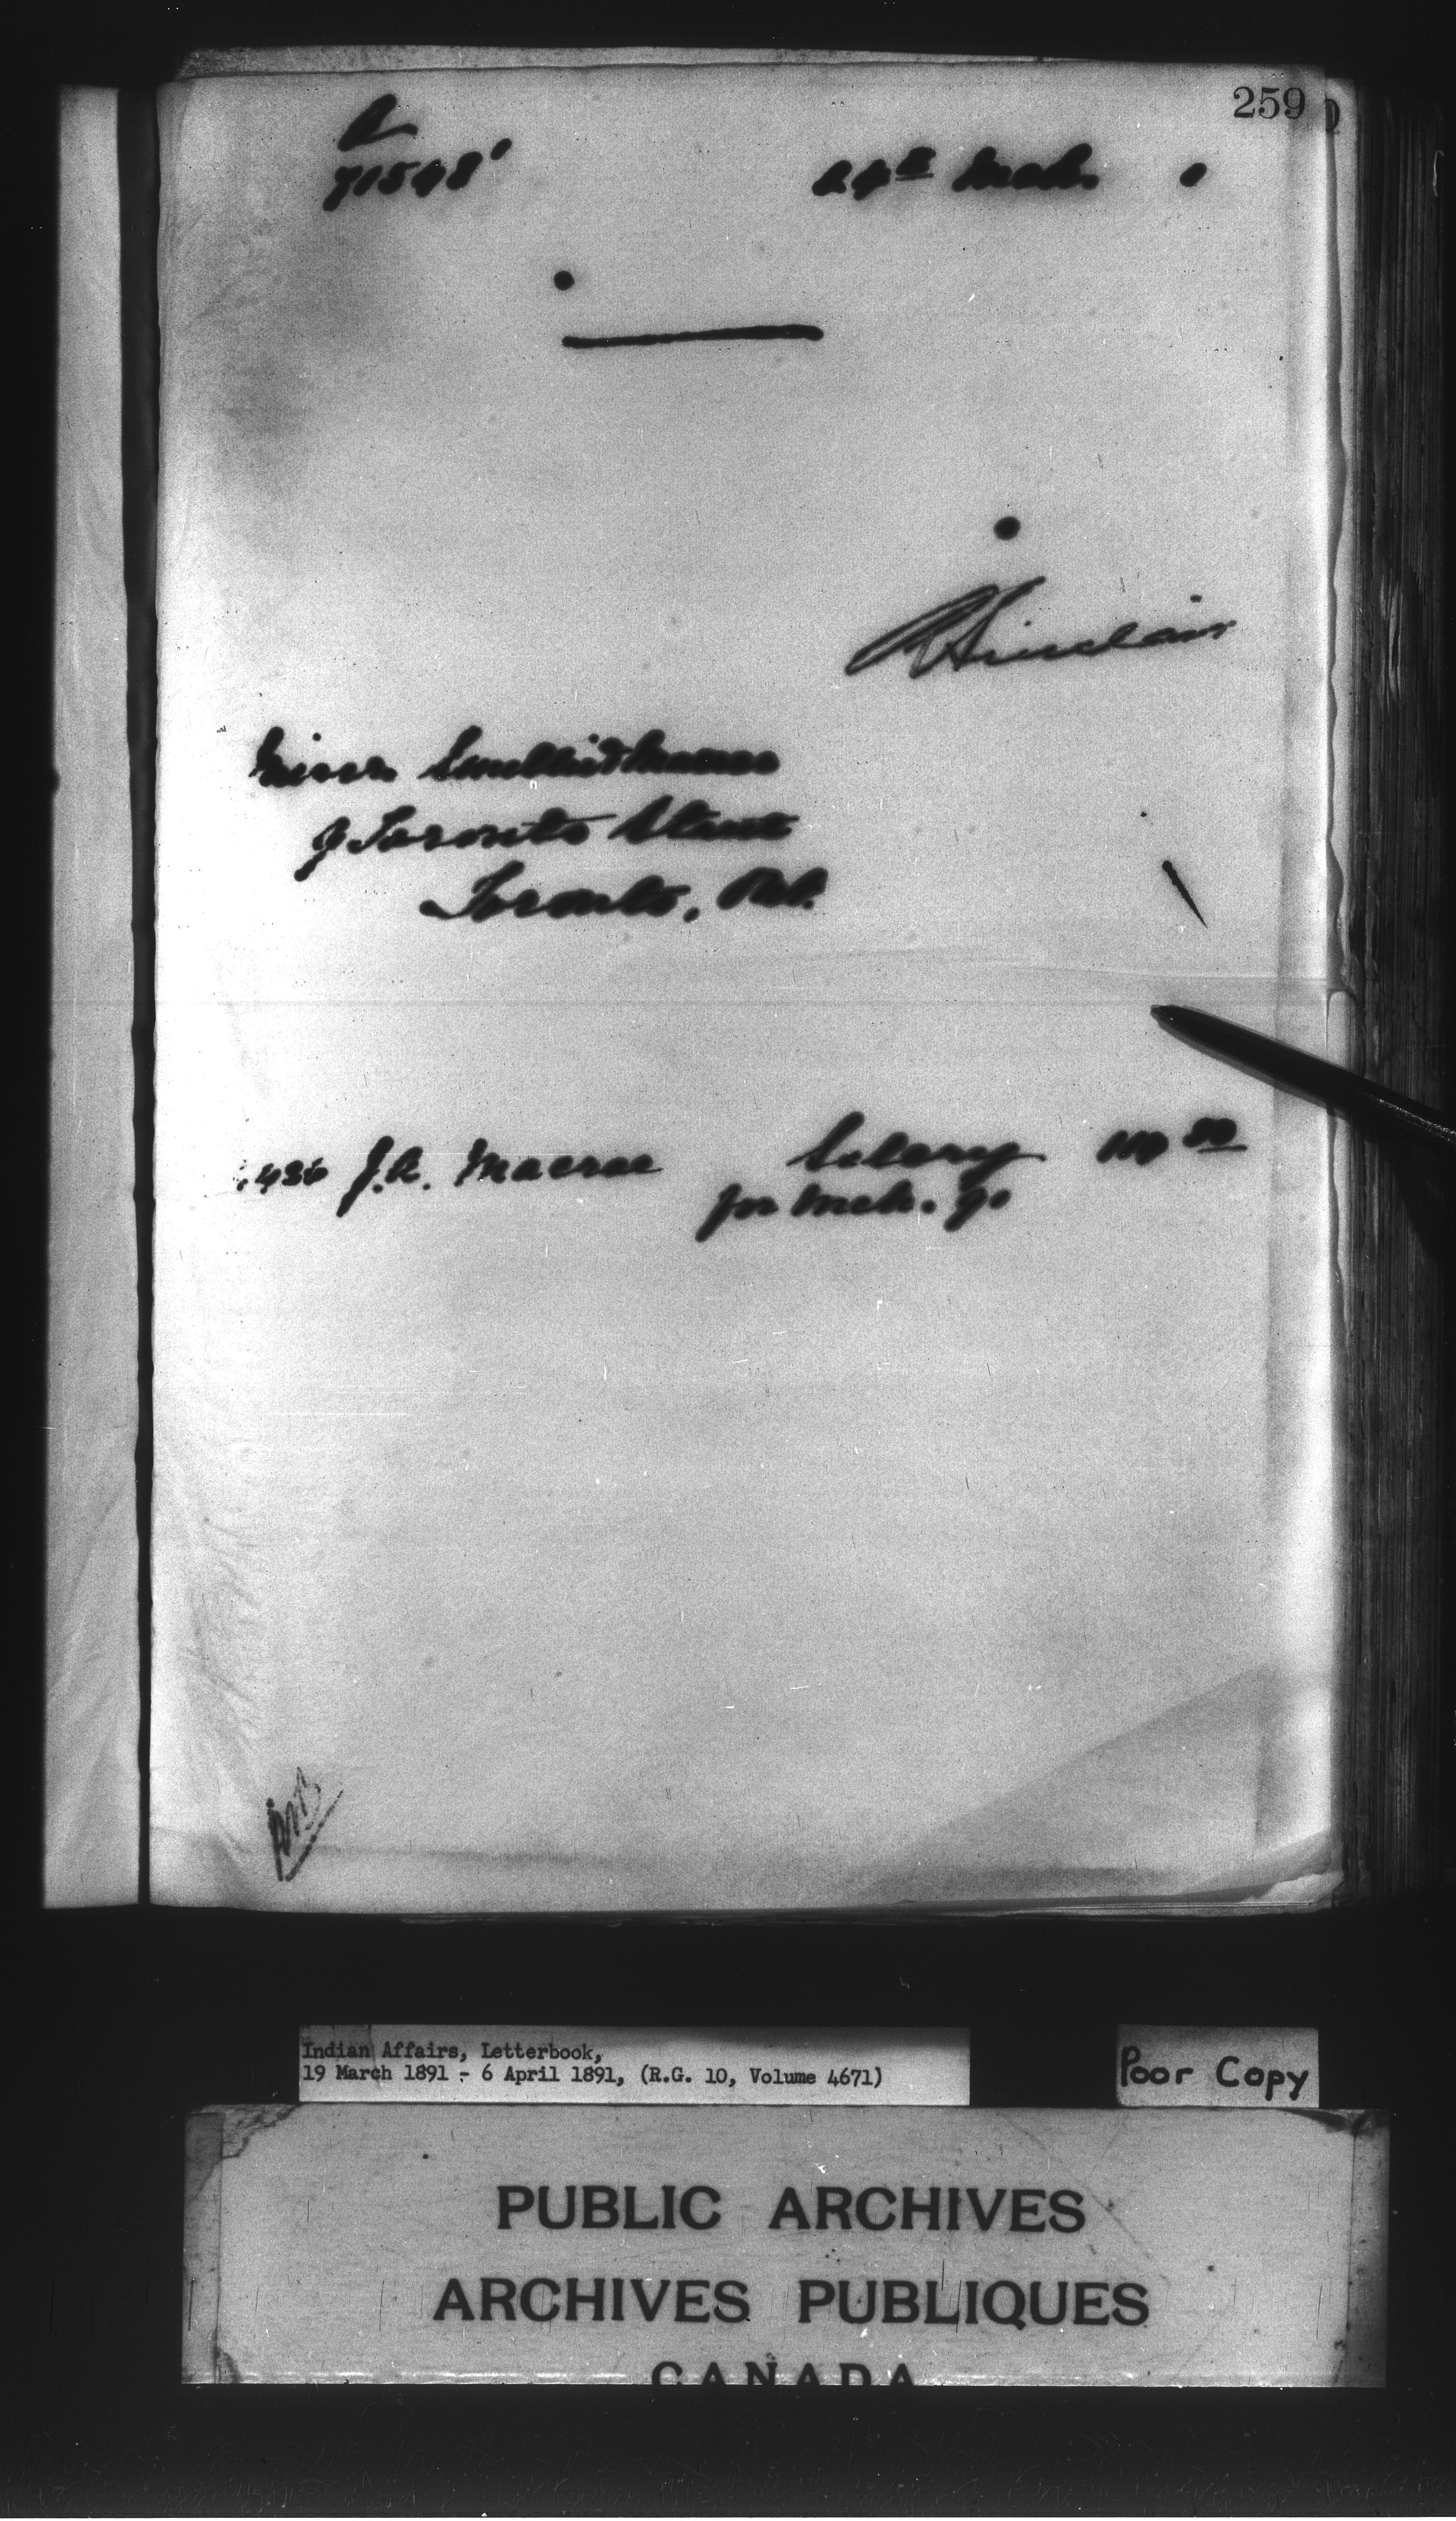 259
A
71548
24th Mch.
Sinclair
Messrs. Smellie & Macrae
9 Toronto Street
Toronto, Ont.
J.A. Macrae Salary
for Mch. 90
Indian Affairs, Letterbook,
19 March 1891 - 6 April 1891, (R.G. 10, Volume 4671)
Poor Copy
PUBLIC ARCHIVES
ARCHIVES PUBLIQUES
CANADA